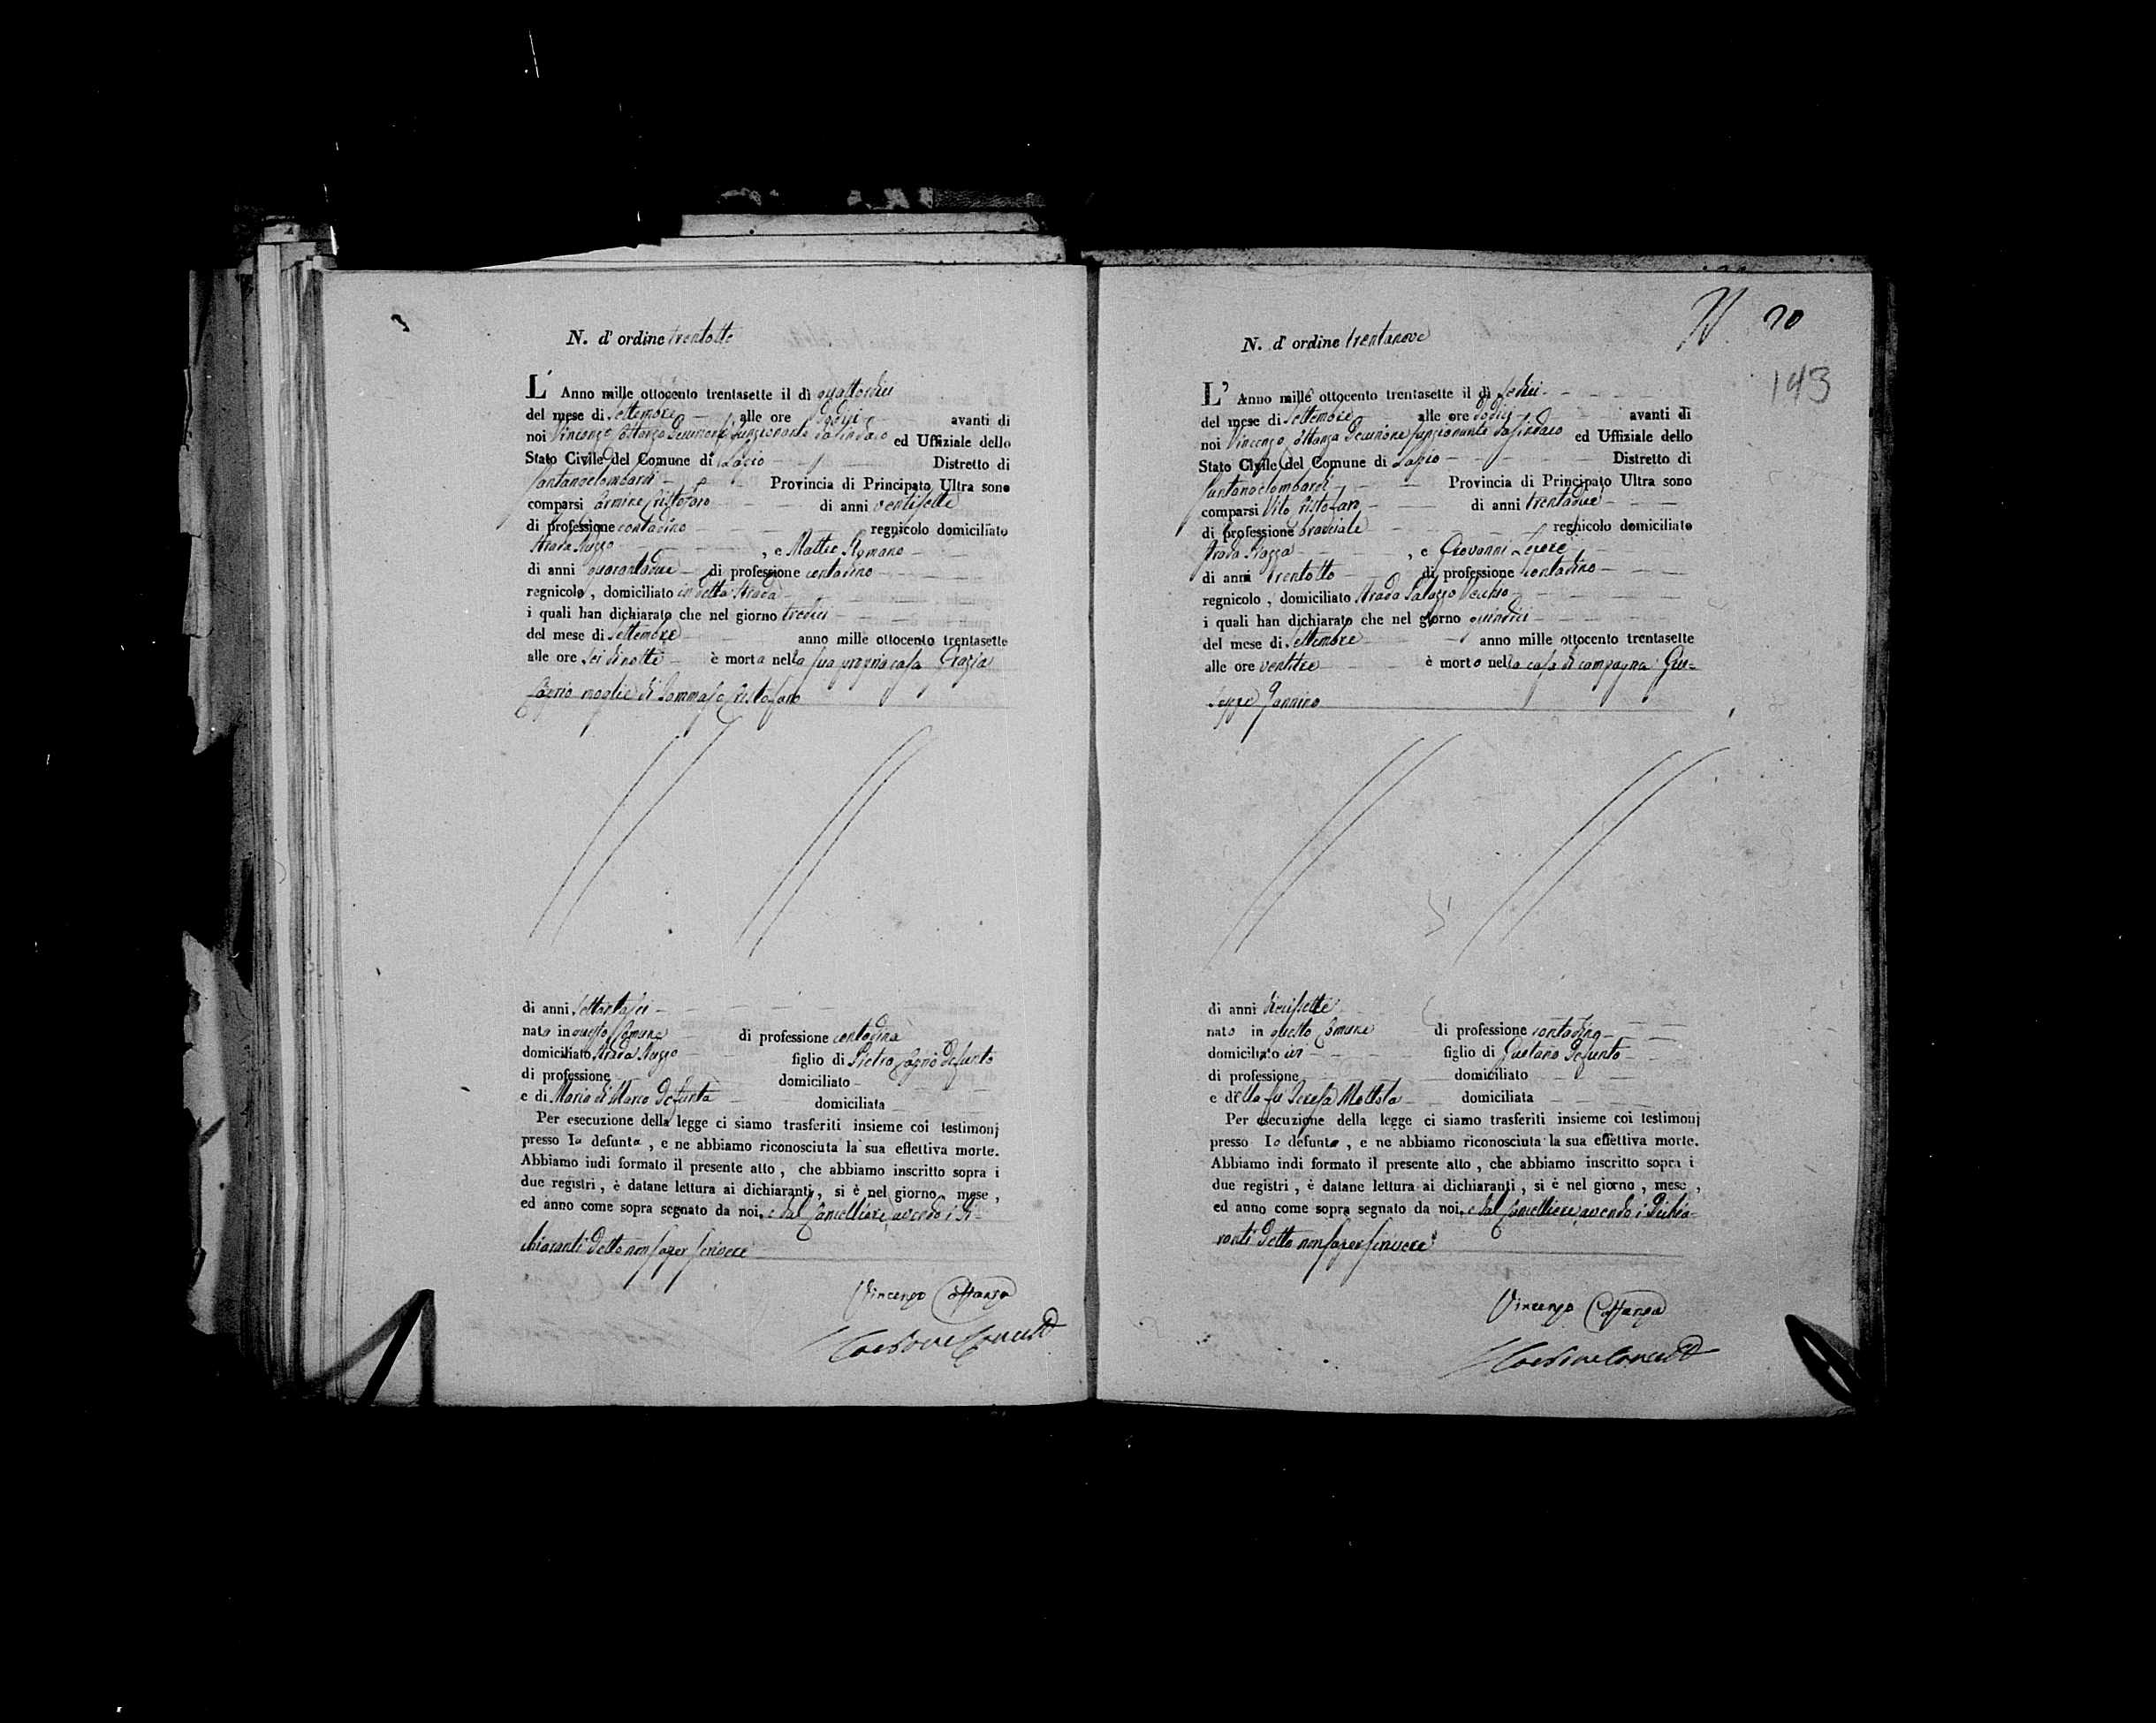 N. d' ordine trentotto
L' Anno mille ottocento trentasette il dì quattordici
del mese di Settembre alle ore dodici avanti di
noi Vincenzo Cottanza Decurione funzionante da Sindaco ed Uffiziale dello
Stato Civile del Comune di Lacio Distretto di
Santangelombardi Provincia di Principato Ultra sono
comparsi Carmine Cristofaro di anni ventisette
di professione contadino regnicolo domiciliato
Strada , e Matteo Romano
di anni quarantadue di professione contadino
regnicolo , domiciliato in detta Strada
i quali han dichiarato che nel giorno tredici
del mese di Settembre anno mille ottocento trentasette
alle ore sei di notte è morta nella sua propria casa Grazia
moglie di Tommaso Cristofaro
di anni settantasei
nata in questo Comune di professione contadina
domiciliato Strada figlio di Pietro defunto
di professione domiciliato
e di Maria di Marco defunta domiciliata
Per esecuzione della legge ci siamo trasferiti insieme coi testimonj
presso la defunta , e ne abbiamo riconosciuta la sua effettiva morte.
Abbiamo indi formato il presente atto , che abbiamo inscritto sopra i
due registri , è datane lettura ai dichiaranti , si è nel giorno , mese ,
ed anno come sopra segnato da noi, e dal Cancelliere, avendo i di-
chiaranti detto non saper scrivere
Vincenzo Cottanza
70
143
N. d' ordine trentanove
L' Anno mille ottocento trentasette il dì sedici
del mese di Settembre alle ore dodici avanti di
noi Vincenzo Cottanza Decurione funzionante da Sindaco ed Uffiziale dello
Stato Civile del Comune di Lacio Distretto di
Santangelombardi Provincia di Principato Ultra sono
comparsi Vito Cristofaro di anni trentadue
di professione bracciale regnicolo domiciliato
Strada Piazza , e Giovanni Lepore
di anni trentotto di professione contadino
regnicolo , domiciliato Strada Palazzo Vecchio
i quali han dichiarato che nel giorno quindici
del mese di Settembre anno mille ottocento trentasette
alle ore ventitre è morto nella casa di campagna Giu-
seppe Jannino
di anni diecissette
nato in questo Comune di professione contadino
domiciliato ivi figlio di Gaetano defunto
di professione domiciliato
e della fu Teresa Mottola domiciliata
Per esecuzione della legge ci siamo trasferiti insieme coi testimonj
presso lo defunto , e ne abbiamo riconosciuta la sua effettiva morte.
Abbiamo indi formato il presente atto , che abbiamo inscritto sopra i
due registri , è datane lettura ai dichiaranti , si è nel giorno , mese ,
ed anno come sopra segnato da noi, e dal Cancelliere, avendo i dichia-
ranti detto non saper scrivere
Vincenzo Cottanza